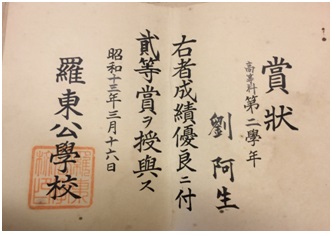 賞狀
高等科第二學年
劉阿生
右者成績優良ニ付
貳等賞ヲ授與ス
昭和十三年三月十六日
羅東公學校